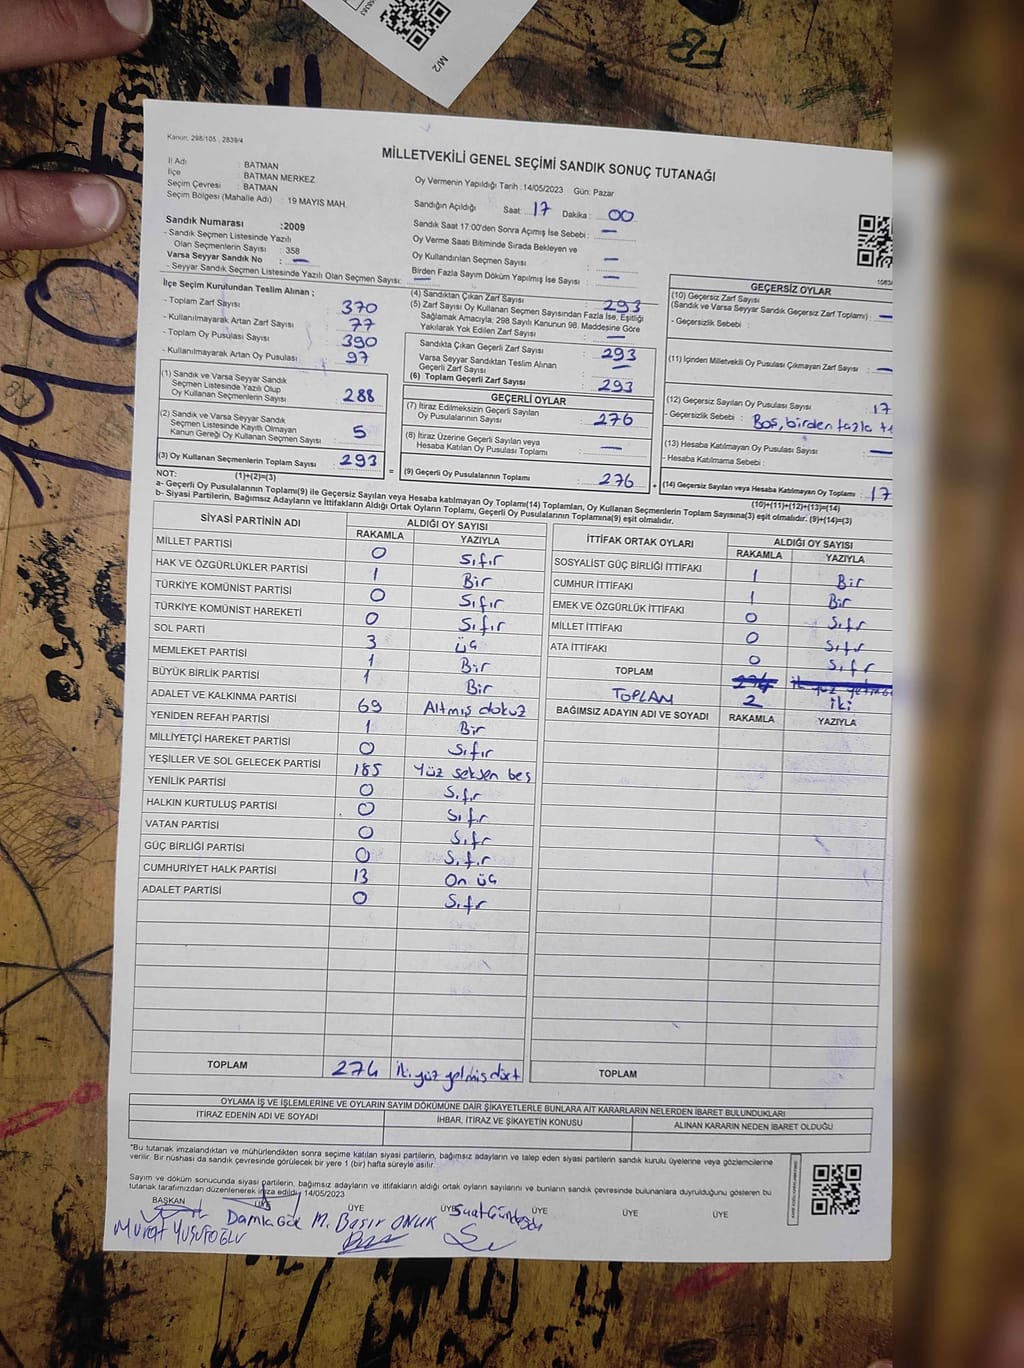 M/2
FB
1905
Kanun, 298/105 , 2839/4
MİLLETVEKİLİ GENEL SEÇİMİ SANDIK SONUÇ TUTANAĞI
İl Adı : BATMAN
İlçe : BATMAN MERKEZ
Seçim Çevresi : BATMAN
Seçim Bölgesi (Mahalle Adı) : 19 MAYIS MAH.
Oy Vermenin Yapıldığı Tarih :14/05/2023 Gün: Pazar
Sandığın Açıldığı Saat : 17 Dakika : 00
Sandık Saat 17.00'den Sonra Açımış İse Sebebi : —
Oy Verme Saati Bitiminde Sırada Bekleyen ve
Oy Kullandırılan Seçmen Sayısı : —
Birden Fazla Sayım Döküm Yapılmış İse Sayısı : —
Sandık Numarası :2009
- Sandık Seçmen Listesinde Yazılı
Olan Seçmenlerin Sayısı : 358
Varsa Seyyar Sandık No : —
- Seyyar Sandık Seçmen Listesinde Yazılı Olan Seçmen Sayısı: —
İlçe Seçim Kurulundan Teslim Alınan ;
- Toplam Zarf Sayısı : 370
- Kullanılmayarak Artan Zarf Sayısı : 77
- Toplam Oy Pusulası Sayısı : 390
- Kullanılmayarak Artan Oy Pusulası : 97
(1) Sandık ve Varsa Seyyar Sandık
Seçmen Listesinde Yazılı Olup
Oy Kullanan Seçmenlerin Sayısı : 288
(2) Sandık ve Varsa Seyyar Sandık
Seçmen Listesinde Kayıtlı Olmayan
Kanun Gereği Oy Kullanan Seçmen Sayısı : 5
(3) Oy Kullanan Seçmenlerin Toplam Sayısı : 293
(1)+(2)=(3)
(4) Sandıktan Çıkan Zarf Sayısı : 293
(5) Zarf Sayısı Oy Kullanan Seçmen Sayısından Fazla İse, Eşitliği
Sağlamak Amacıyla; 298 Sayılı Kanunun 98. Maddesine Göre
Yakılarak Yok Edilen Zarf Sayısı : —
Sandıkta Çıkan Geçerli Zarf Sayısı : 293
Varsa Seyyar Sandıktan Teslim Alınan
Geçerli Zarf Sayısı : —
(6) Toplam Geçerli Zarf Sayısı : 293
GEÇERLİ OYLAR
(7) İtiraz Edilmeksizin Geçerli Sayılan
Oy Pusulalarının Sayısı : 276
(8) İtiraz Üzerine Geçerli Sayılan veya
Hesaba Katılan Oy Pusulası Toplamı : —
= (9) Geçerli Oy Pusulalarının Toplamı : 276 +
GEÇERSİZ OYLAR
(10) Geçersiz Zarf Sayısı
(Sandık ve Varsa Seyyar Sandık Geçersiz Zarf Toplamı) : —
- Geçersizlik Sebebi :
(11) İçinden Milletvekili Oy Pusulası Çıkmayan Zarf Sayısı : —
(12) Geçersiz Sayılan Oy Pusulası Sayısı : 17
- Geçersizlik Sebebi : Boş, birden fazla
(13) Hesaba Katılmayan Oy Pusulası Sayısı : —
- Hesaba Katılmama Sebebi :
(14) Geçersiz Sayılan veya Hesaba Katılmayan Oy Toplamı : 17
(10)+(11)+(12)+(13)=(14)
NOT:
a- Geçerli Oy Pusulalarının Toplamı(9) ile Geçersiz Sayılan veya Hesaba katılmayan Oy Toplamı(14) Toplamları, Oy Kullanan Seçmenlerin Toplam Sayısına(3) eşit olmalıdır. (9)+(14)=(3)
b- Siyasi Partilerin, Bağımsız Adayların ve İttifakların Aldığı Ortak Oyların Toplamı, Geçerli Oy Pusulalarının Toplamına(9) eşit olmalıdır.
SİYASİ PARTİNİN ADI ALDIĞI OY SAYISI
RAKAMLA YAZIYLA
MİLLET PARTİSİ 0 Sıfır
HAK VE ÖZGÜRLÜKLER PARTİSİ 1 Bir
TÜRKİYE KOMÜNİST PARTİSİ 0 Sıfır
TÜRKİYE KOMÜNİST HAREKETİ 0 Sıfır
SOL PARTİ 3 üç
MEMLEKET PARTİSİ 1 Bir
BÜYÜK BİRLİK PARTİSİ 1 Bir
ADALET VE KALKINMA PARTİSİ 69 Altmış dokuz
YENİDEN REFAH PARTİSİ 1 Bir
MİLLİYETÇİ HAREKET PARTİSİ 0 Sıfır
YEŞİLLER VE SOL GELECEK PARTİSİ 185 Yüz seksen beş
YENİLİK PARTİSİ 0 Sıfır
HALKIN KURTULUŞ PARTİSİ 0 Sıfır
VATAN PARTİSİ 0 Sıfır
GÜÇ BİRLİĞİ PARTİSİ 0 Sıfır
CUMHURİYET HALK PARTİSİ 13 On üç
ADALET PARTİSİ 0 Sıfır
TOPLAM 274 İki yüz yetmiş dört
İTTİFAK ORTAK OYLARI ALDIĞI OY SAYISI
RAKAMLA YAZIYLA
SOSYALİST GÜÇ BİRLİĞİ İTTİFAKI 1 Bir
CUMHUR İTTİFAKI 1 Bir
EMEK VE ÖZGÜRLÜK İTTİFAKI 0 Sıfır
MİLLET İTTİFAKI 0 Sıfır
ATA İTTİFAKI 0 Sıfır
TOPLAM 274 iki yüz yetmiş
TOPLAM 2 iki
BAĞIMSIZ ADAYIN ADI VE SOYADI RAKAMLA YAZIYLA
TOPLAM
OYLAMA İŞ VE İŞLEMLERİNE VE OYLARIN SAYIM DÖKÜMÜNE DAİR ŞİKAYETLERLE BUNLARA AİT KARARLARIN NELERDEN İBARET BULUNDUKLARI
İTİRAZ EDENİN ADI VE SOYADI İHBAR, İTİRAZ VE ŞİKAYETİN KONUSU ALINAN KARARIN NEDEN İBARET OLDUĞU
*Bu tutanak imzalandıktan ve mühürlendikten sonra seçime katılan siyasi partilerin, bağımsız adayların ve talep eden siyasi partilerin sandık kurulu üyelerine veya gözlemcilerine
verilir. Bir nüshası da sandık çevresinde görülecek bir yere 1 (bir) hafta süreyle asılır.
Sayım ve döküm sonucunda siyasi partilerin, bağımsız adayların ve ittifakların aldığı ortak oyların sayılarını ve bunların sandık çevresinde bulunanlara duyrulduğunu gösteren bu
tutanak tarafımızdan düzenlenerek imza edildi. 14/05/2023
BAŞKAN ÜYE ÜYE ÜYE ÜYE ÜYE ÜYE
Murat YUSUFOĞLU Damla Göl M. Başır ONUK Suat Gündoğdu